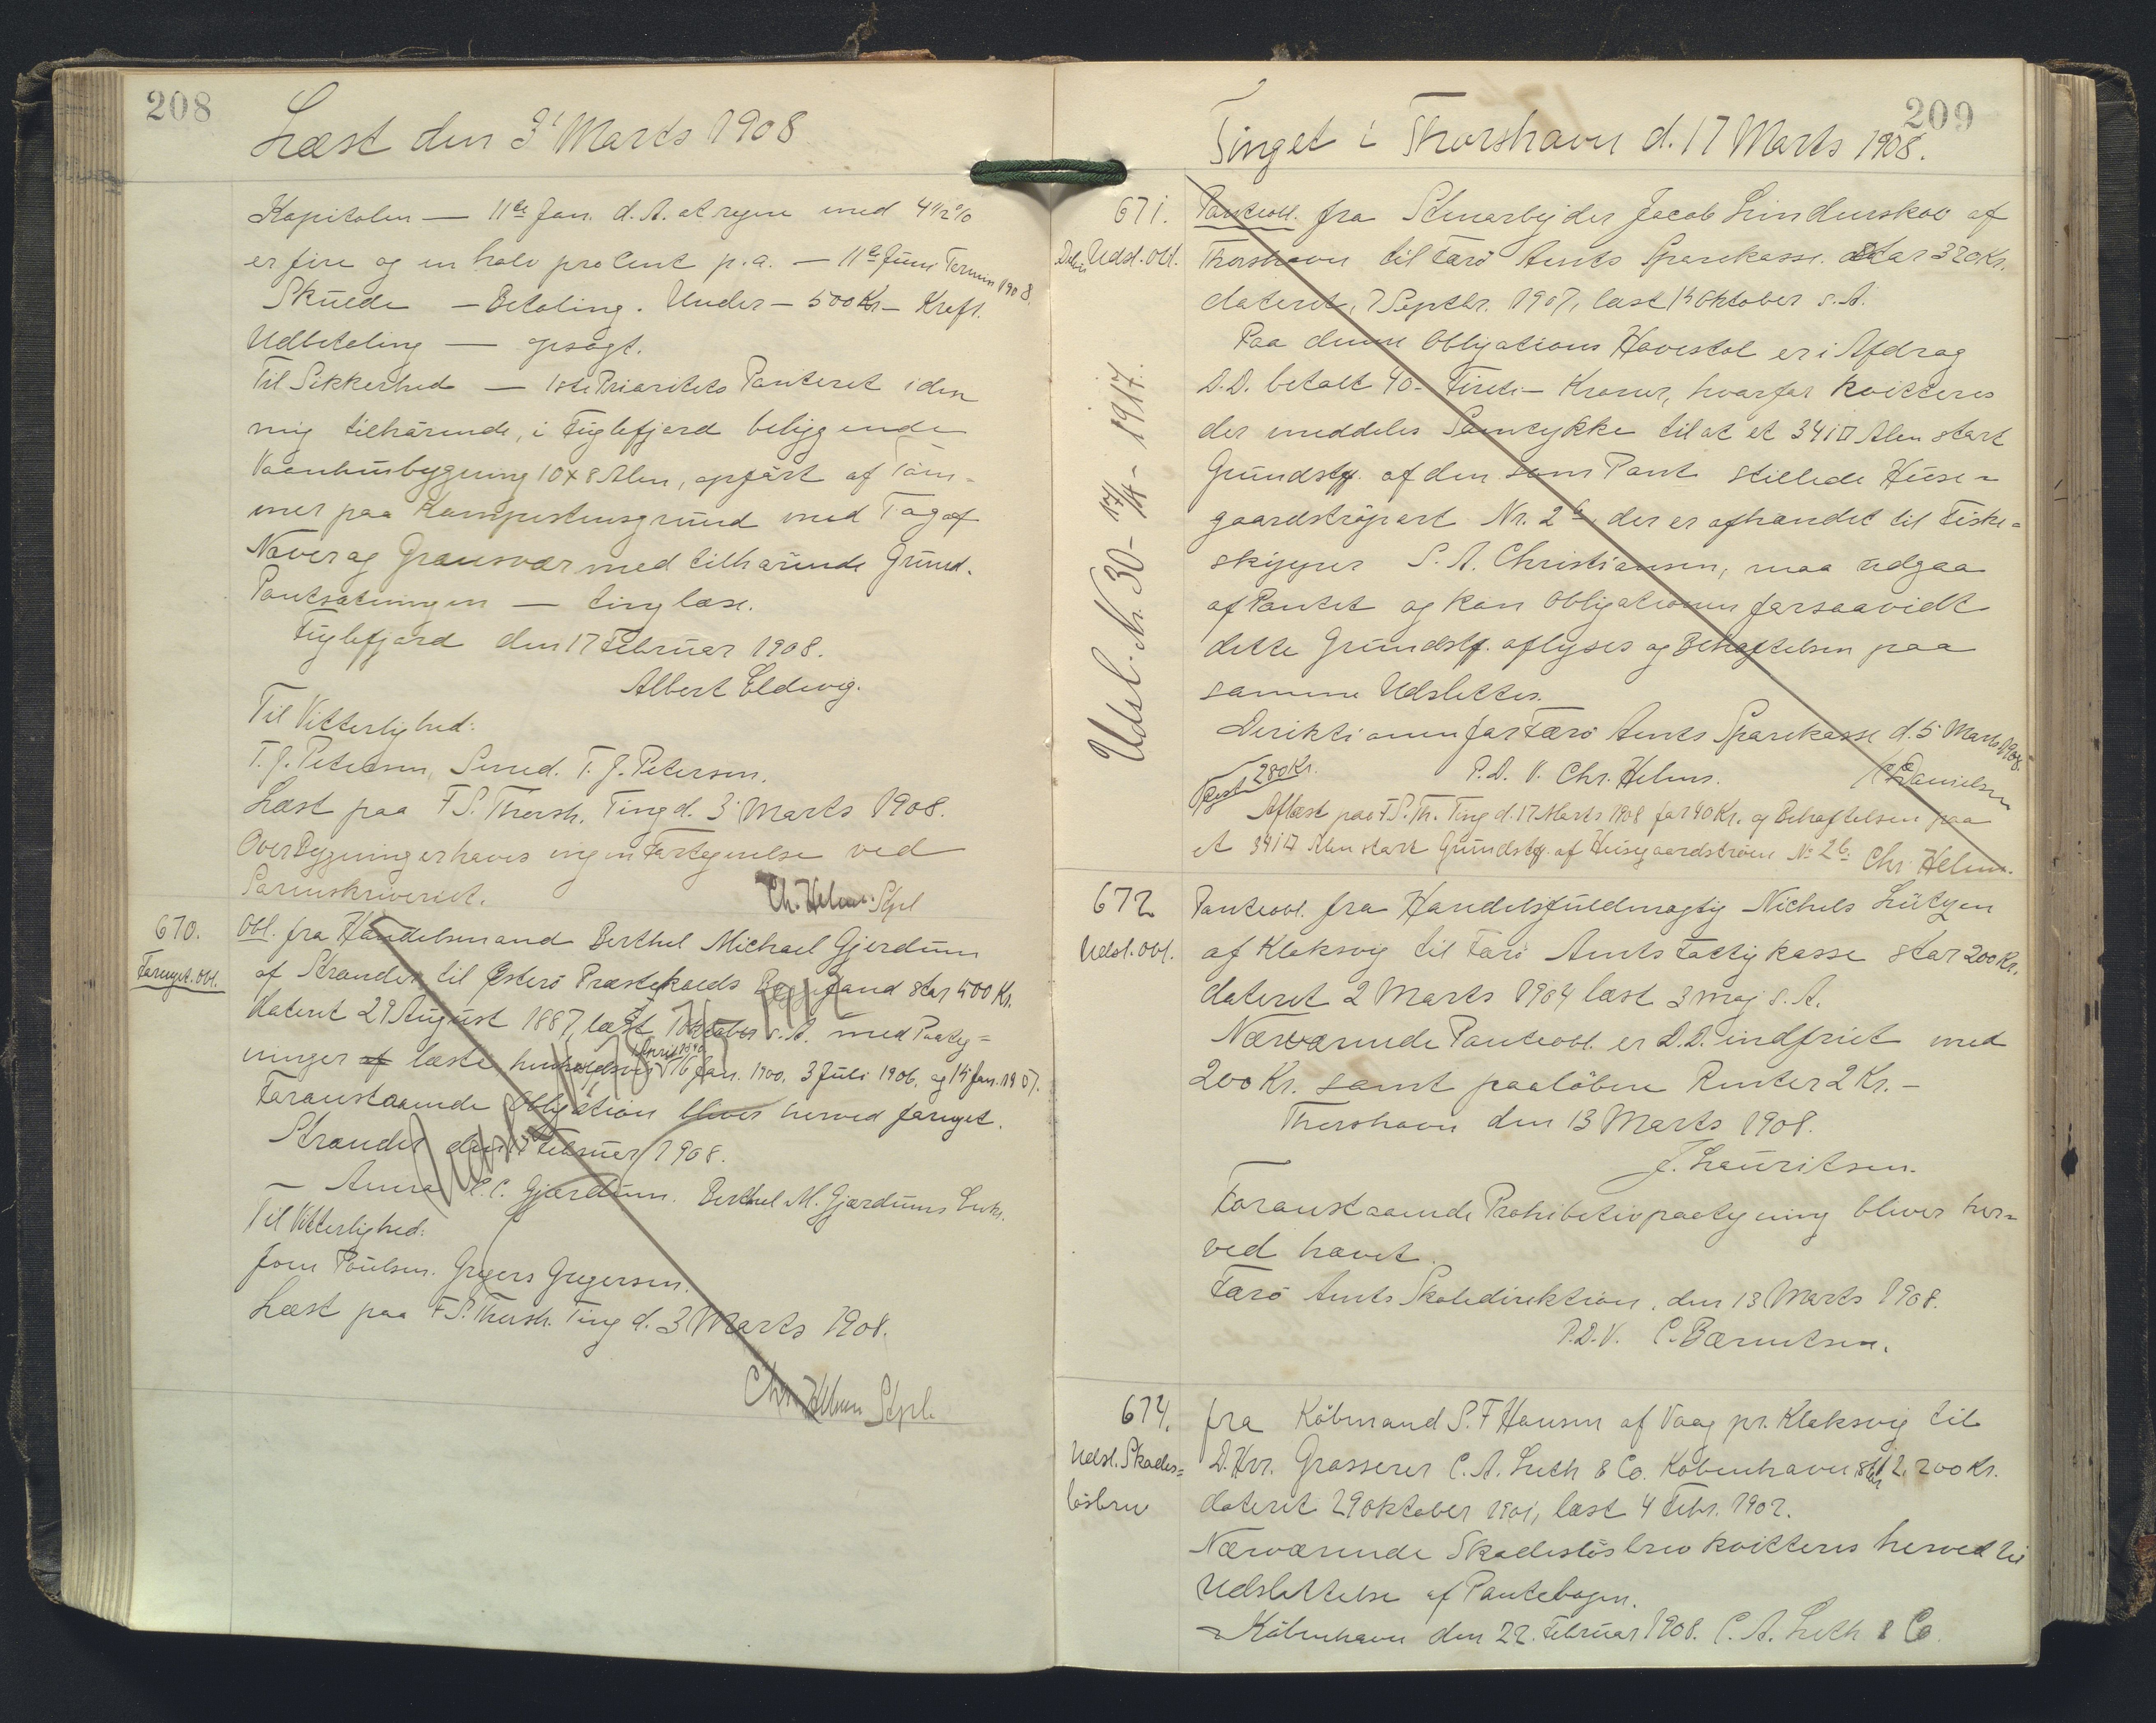 208
Læst den 3' Marts 1908
Kapitalen — 11te Jan. d. A. at regne med 4½ %
er fire og en halv procent p.a. — 11te Juni Termin 1908.
Skulde — Betaling. Under — 500 Kr — Kraft.
Udbetaling — opsagt.
Til Sikkerhed — 1ste Prioritets Panteret i den
mig tilhørende, i Fuglefjord beliggende
Vaanhusbygning 10 x 8 Alen, opført af Tøm-
mer paa Kampestensgrund med Tag af
Næver og Grønsvær med tilhørende Grund.
Pantsætningen — tinglæse.
Fuglefjord den 17 Februar 1908.
Albert Eldevig.
Til Vitterlighed:
T. J. Petersen, Smed. T. J. Petersen.
Læst paa F. S. Thorsh. Ting d. 3' Marts 1908.
Over Bygninger haves ingen Fortegnelse ved
Sorenskriveriet.
Ch. Helms. Stpl
670.
Fornyet. Obl.
Obl. fra Handelsmand Berthel Michael Gjerdum
af Strander til Østerø Præstekalds Byggefond stor 400 Kr.
dateret 29 August 1887, læst 1 Oktober s. A. med Paateg=
ninger af læste henholdsvis 16 Jan. 1900, 3 Juli 1906, og 15 Jan. 1907.
Foranstaaende Obligation bliver herved fornyet.
Strander den Februar 1908.
— Anna C. C. Gjærdum. Berthel M. Gjærdums Enke.
Til Vitterlighed:
Joen Poulsen. Gregers Gregersen.
Læst paa F. S. Thorsh. Ting d. 3 Marts 1908.
Chr. Helms Stpl.
209
Tinget i Thorshavn d. 17 Marts 1908.
671.
Delvis Udsl. Obl.
Udsl. Nr. 30 - 17/4 - 1917.
Panteobl. fra Stenarbejder Jacob Lindenskov af
Thorshavn til Færø Amts Sparekasse stor 320 Kr.
dateret, 7 Septbr. 1907, læst 15 Oktober s. A.
Paa denne Obligations Hovedstol er i Afdrag
D.D. betalt 40 - Fireti - Kroner, hvorfor kvitteres
der meddeles Samtykke til at et 341 □ Alen stort
Grundstk. af den som Pant stillede Huse-
gaardstrøpart Nr. 26 der er afhændet til Fiske=
skipper S. A. Christiansen, maa udgaa
af Pantet og kan Obligationen forsaavidt
dette Grundstk. aflyses og Behæftelsen paa
samme Udslettes.
Direktionen for Færø Amts Sparekasse d. 5 Marts 1908.
Rest 280 Kr.
P. D. V. Chr. Helms. Danielsen
Aflæst paa F. S. Th. Ting d. 17 Marts 1908 for 40 Kr. og Behæftelsen paa
et 341 □ Alen stort Grundstk. af Husegaardstrøen No 26. Chr. Helms.
672
Udsl. Obl.
Panteobl. fra Handelsfuldmægtig Nichels Lützen
af Klaksvig til Færø Amts Fattigkasse stor 200 Kr.
dateret 2 Marts 1904 læst 3 Maj s. A.
Nærværende Panteobl. er D.D. indfriet med
200 Kr. samt paaløbne Renter 2 Kr. -
Thorshavn den 13 Marts 1908.
J. Lauritsen.
Foranstaaende Prohibetivpaategning bliver her=
ved hævet.
Færø Amts Skoledirektion, den 13 Marts 1908.
P.D.V. C. Bærentsen.
674.
Udsl. Skades=
løsbrev
fra Købmand S. F. Hansen af Vaag pr. Klaksvig til
D. Hrr. Grosserer C. A. Luth & Co. København stor 2,200 Kr.
dateret 29 Oktober 1901, læst 4 Febr. 1902.
Nærværende Skadesløsbrev kvitteres herved til
Udslettelse af Pantebogen.
København den 22. Februar 1908. C. A. Luth & Co